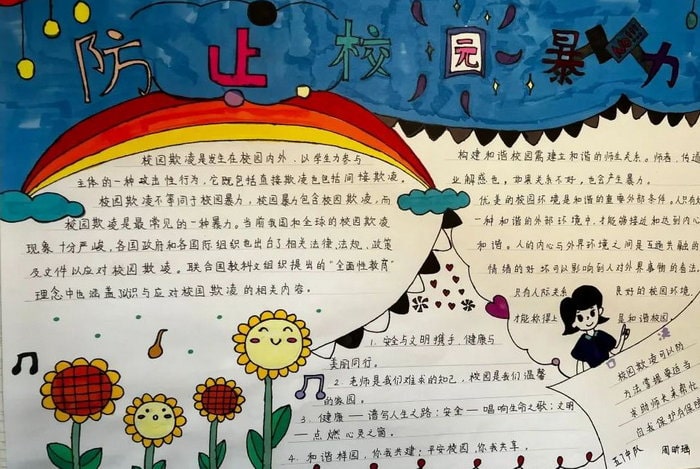 防止校园暴力
校园欺凌是发生在校园内外，以学生为参与
主体的一种攻击性行为，它既包括直接欺凌也包括间接欺凌。
校园欺凌不等同于校园暴力，校园暴力包含校园欺凌，而
校园欺凌是最常见的一种暴力。当前我国和全球的校园欺凌
现象十分严峻，各国政府和各国际组织也出台了相关法律、法规、政策
及文件以应对校园欺凌。联合国教科文组织提出的“全面性教育”
理念中也涵盖认识与应对校园欺凌的相关内容。
构建和谐校园需建立和谐的师生关系。师者，传道
业解惑也，如果关系不好，也会产生暴力。
优美的校园环境是和谐的重要外部条件。人只有处
一种和谐的外部环境中，才能够接近和达到内
和谐。人的内心与外界环境之间是互通共融的
情绪的好坏可以影响到人对外界事物的看法。
只有人际关 良好的校园环境
才能称得上 是和谐校园
1. 安全与文明携手，健康与
美丽同行。
2. 老师是我们难求的知己，校园是我们温馨
的家园。
3. 健康——谱写人生之路；安全——唱响生命之歌；文明
——点燃心灵之窗。
4. 和谐样园，你我共建；平安校园，你我共享。
校园欺凌可以防
方法掌握要适当
求助师长来
自我保护
五7中队 周